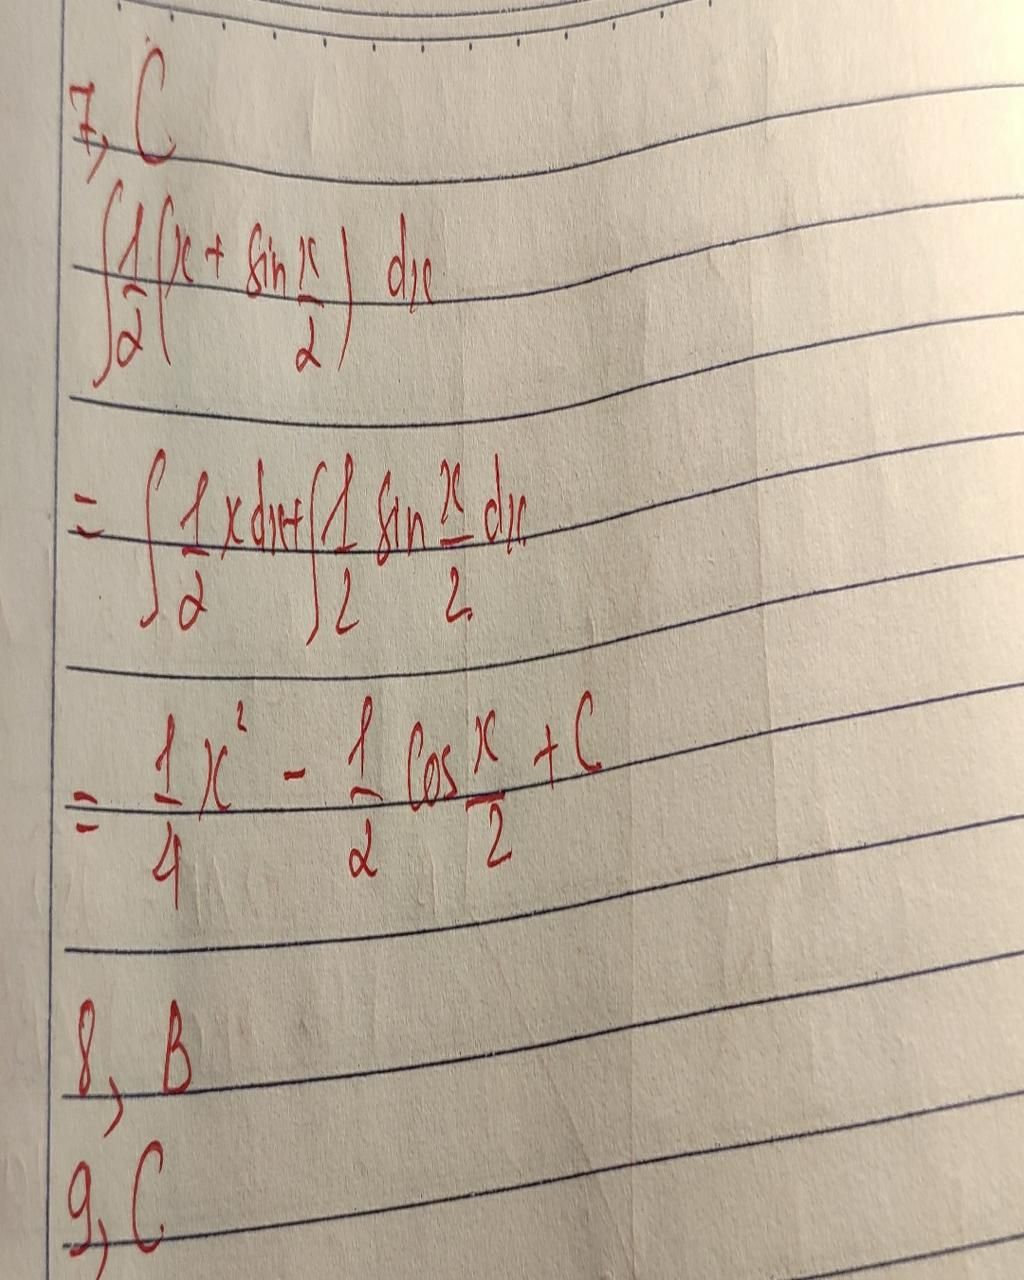 7, C
∫ 1/2 (x + sin x/2) dx
= ∫ 1/2 x dx + ∫ 1/2 sin x/2 dx
= 1/4 x² - 1/2 cos x/2 + C
8, B
9, C